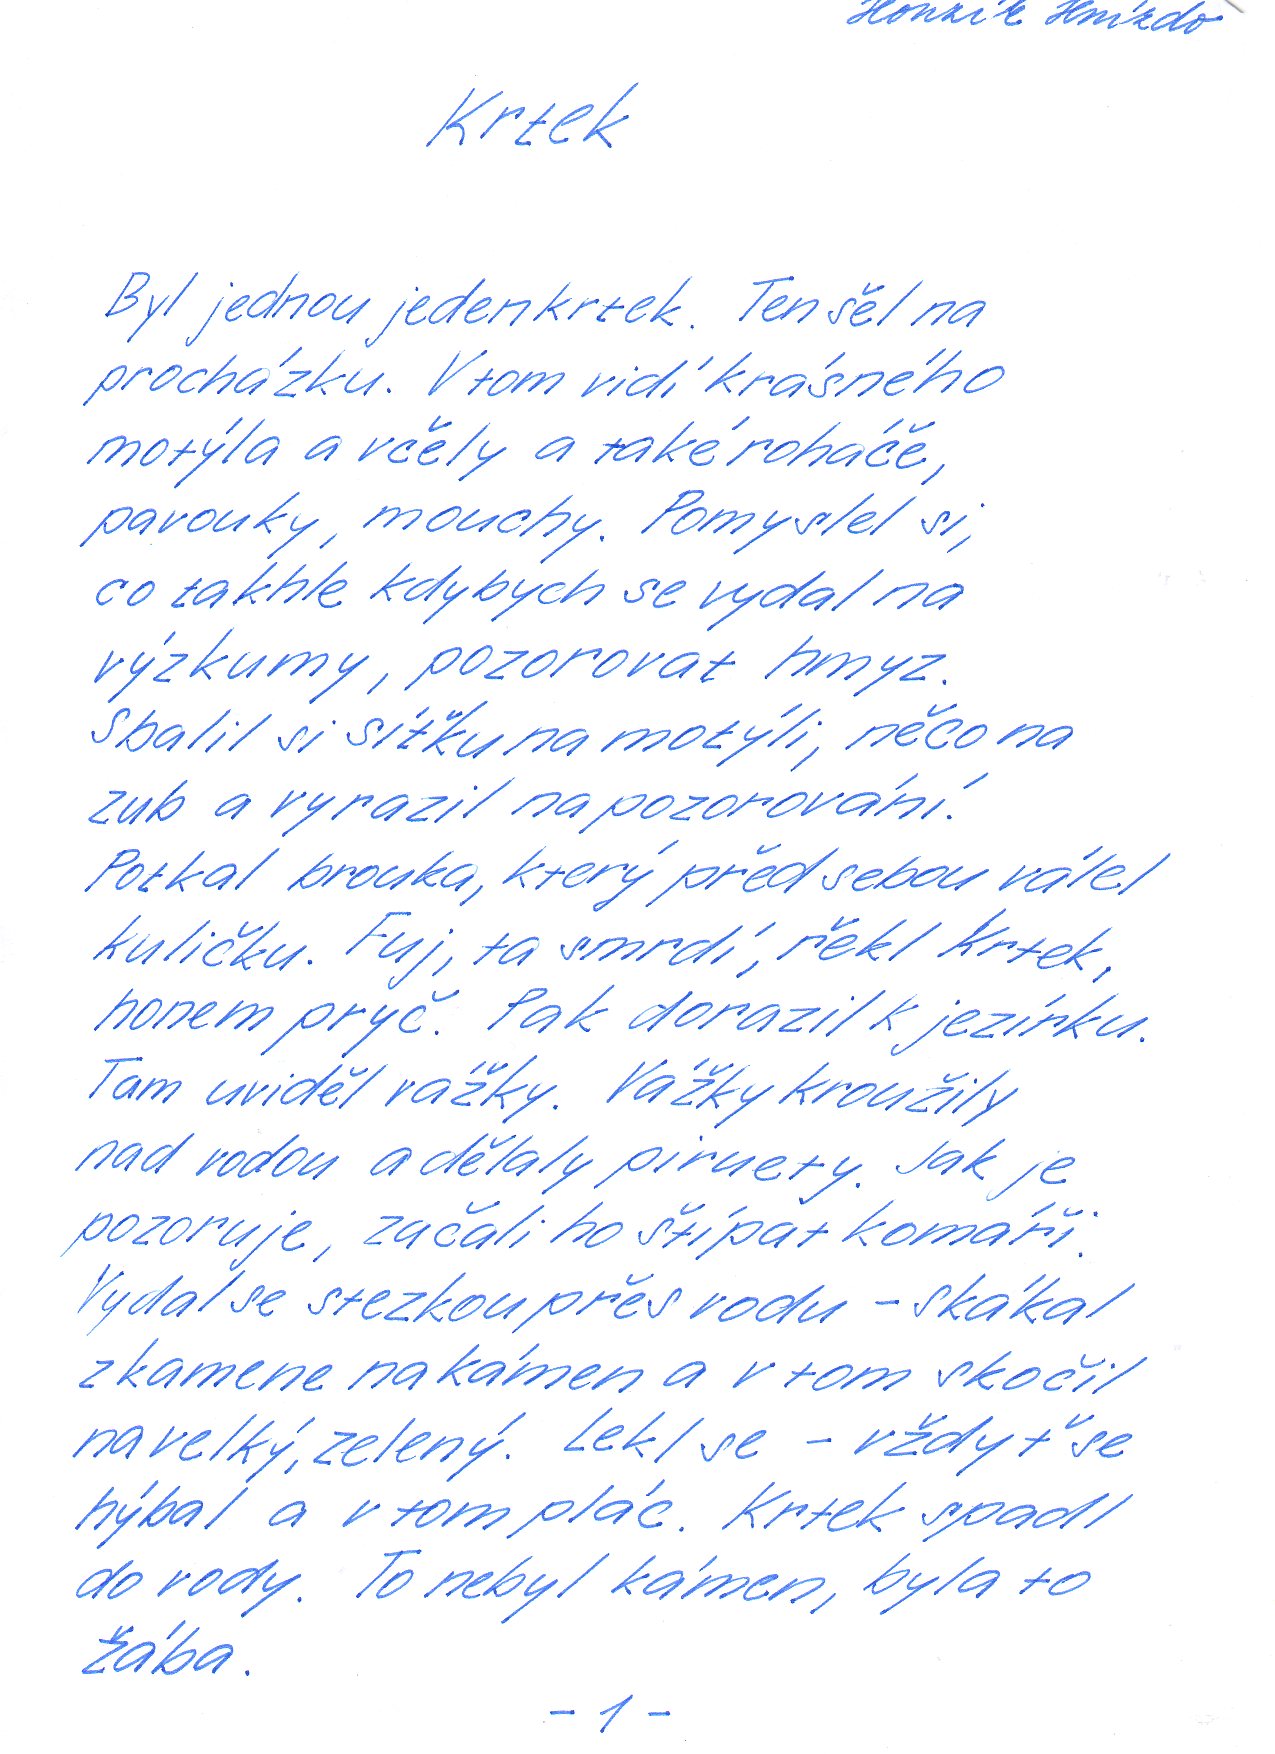 Honzík Hnízdo
Krtek
Byl jednou jeden krtek. Ten šel na
procházku. V tom vidí krásného
motýla a včely a také roháče,
pavouky, mouchy. Pomyslel si,
co takhle kdybych se vydal na
výzkumy, pozorovat hmyz.
Sbalil si síťku na motýli, něco na
zub a vyrazil na pozorování.
Potkal brouka, který před sebou válel
kuličku. Fuj, ta smrdí, řekl Krtek,
honem pryč. Pak dorazil k jezírku.
Tam uviděl vážky. Vážky kroužily
nad vodou a dělaly piruety. Jak je
pozoruje, začali ho štípat komáři.
Vydal se stezkou přes vodu - skákal
z kamene na kámen a v tom skočil
na velký, zelený. Lekl se - vždyť se
hýbal a v tom plác. Krtek spadl
do vody. To nebyl kámen, byla to
žába.
- 1 -